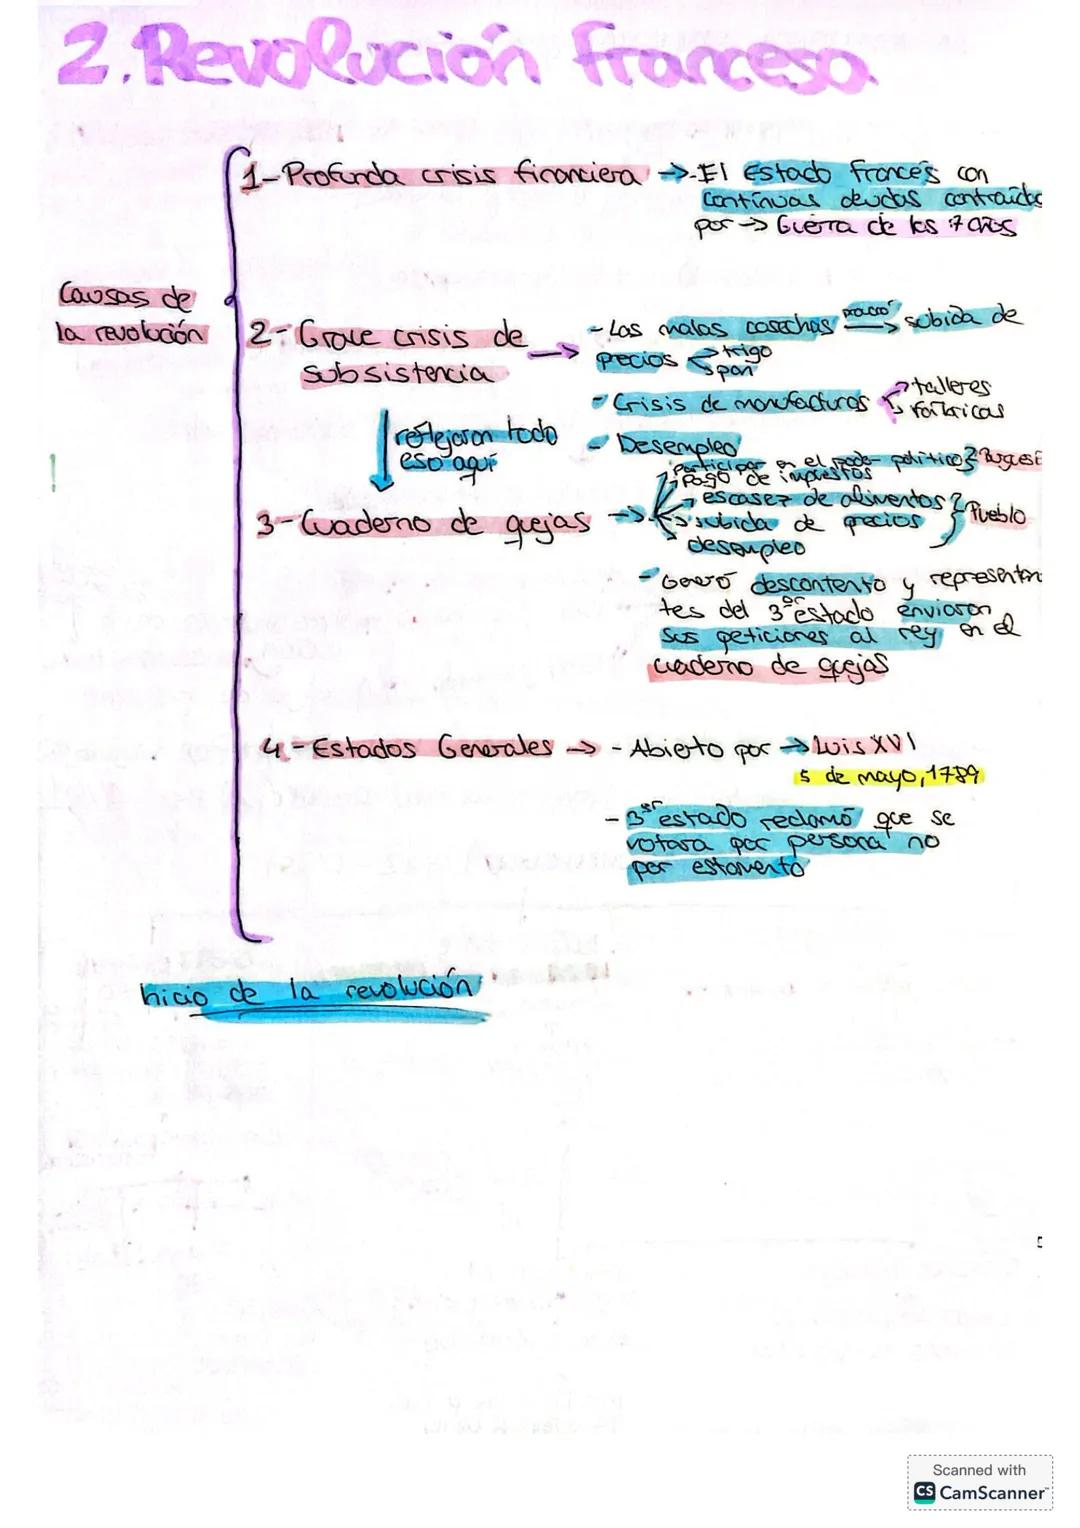 2. Revolución francesa
1-Profunda crisis financiera → -El Estado francés con
continuas deudas contraida
por → Guerra de los 7 años
Causas de
la revolución
2- Grave crisis de
subsistencia →
- Las malas cosechas → subida de
precios trigo
pan
- Crisis de manufacturas talleres
fábricas
- Desempleo
reflejaron todo
eso aquí
3-Cuaderno de quejas →
participar en el poder político } Burgues
pago de impuestos
escasez de alimentos
subida de precios } Pueblo
desempleo
- Generó descontento y representan
tes del 3er estado enviaron
sus peticiones al rey en el
cuaderno de quejas
4-Estados Generales → - Abierto por → Luis XVI
5 de mayo, 1789
- 3er estado reclamó que se
votara por persona no
por estamento
Inicio de la revolución
Scanned with
CS CamScanner